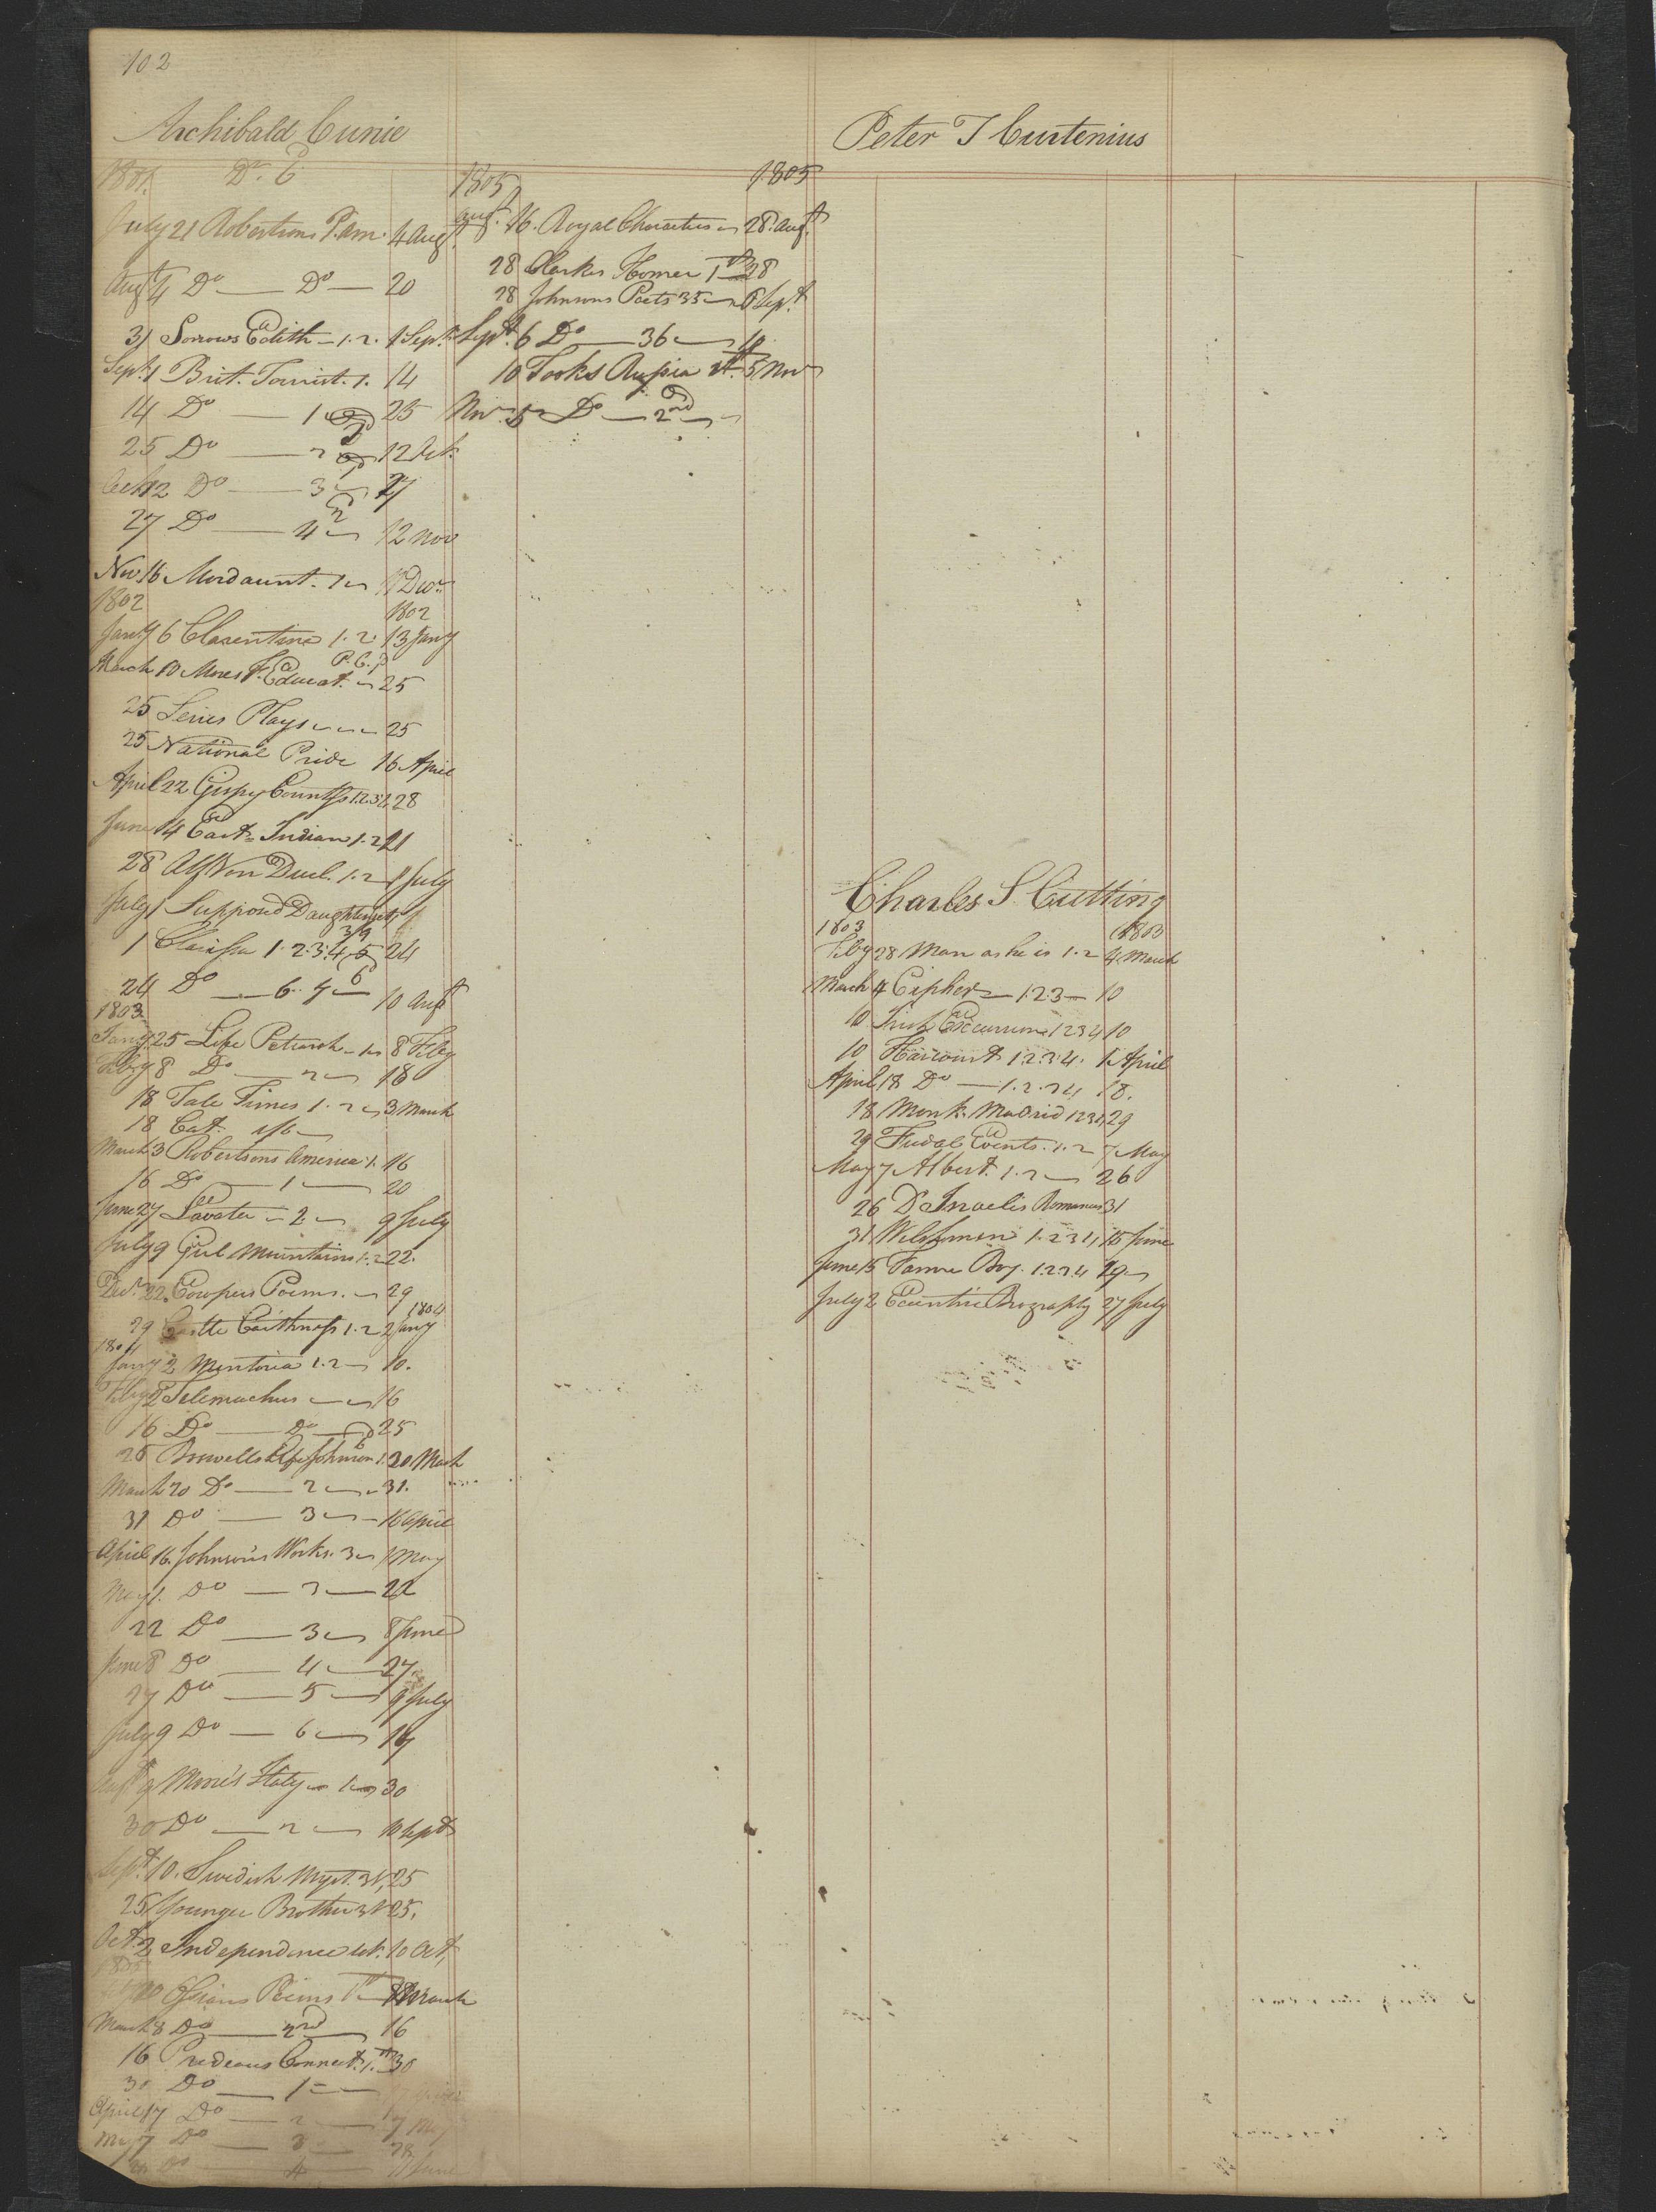 102
Archibald Currie
Dr. C
1801
July 21 Robertsons 4 Aug.
Augt 4 Do — Do — 20
31 Sorrows Edith — 1.2. 1 Sept.
Sept. 1 Brit. Tourist. 1. 14
14 Do — 1 25
25 Do — 2 12 Oct.
Oct. 12 Do — 3 27
27 Do — 4 12 Nov
Nov. 16 Mordaunt. 1 Decr.
1802 1802
Jany 6 Clarentine 1.2. 13 Jany
March 10 Mores F. Educat. 25
25 Series Plays 25
25 National Pride 16 April
April 22 Gipsy Countess 1.2.3. 28
June 14 East Indian 1.2 21
28 Alf Von Duel. 1.2 1 July
July 1 Supposed Daughter
1 Clarissa 1.2.3.4.5 24
24 Do — 6. 7 10 Augt
1803
Jany 25 Life Petrarch — 1 8 Feby
Feby 8 Do — 2 18
18 Tale Times 1.2 3 March
18 Cat.
March 3 Robertsons America 1. 16
16 Do — 1 — 20
June 27 Lavater 2 9 July
July 9 Girl Mountains 1.2 22.
Decr. 22. Cowpers Poems. 29
1804
29 Castle Caithness 1.2 2 Jany
1804
Jany 2 Mentoria 1.2 10.
Feby 2 Telemachus — 16
16 Do — Do 25
25 Boswells Life Johnson 1. 20 March
March 20 Do — 2 — 31.
31 Do — 3 — 16 April
April 16. Johnson's Works. 3 1 May
May 1. Do — 3 — 22
22 Do — 3 8 June
June 8 Do — 4 — 27.
27 Do — 5 — 9 July
July 9 Do — 6 19
9 More's Italy 1 30
30 Do — 2 — 10 Septr
Sept. 10. Swedish Myst. 3 V. 25
25 Younger Brother 3 V 25.
Oct. 2 Independence 10 Oct.
1805
Ossians Poems 1st 8 March
March 8 Do — 2nd 16
16 Prideaus Connect. 1. 30
30 Do — 1
April 17 Do — 2 — 7 May
May 7 Do — 3 — 28
Do — 4 — June
1805 1805
Augt. 16. Royal Characters 28. Augt.
28 Clarkes Homer 1st 28
28 Johnsons Poets 35 6 Sept.
Sept. 6 Do — 36 — 10
10 Tooks Russia 1st. 5 Nov
Nov. 5 Do — 2nd
Peter T Curtenius
Charles S. Cutting
1803 1803
Feby 28 Man as he is 1.2 4 March
March 4 Cipher — 1.2.3 — 10
10 Irish Excursion 1 2 3 4 10
10 Harcourt 1.2.3.4. April
April 18 Do — 1.2.3 4 18.
18 Monk Madrid 1 2 3 4 29
29 Fudal Events. 1.2 7 May
May 7 Albert. 1.2 — 26
26 D'Israelis Romances 31
31 Welshmen 1.2 3 4 15 June
June 15 Farmr Boy. 1.2.3.4 19
July 2 Eccentric Biography 27 July